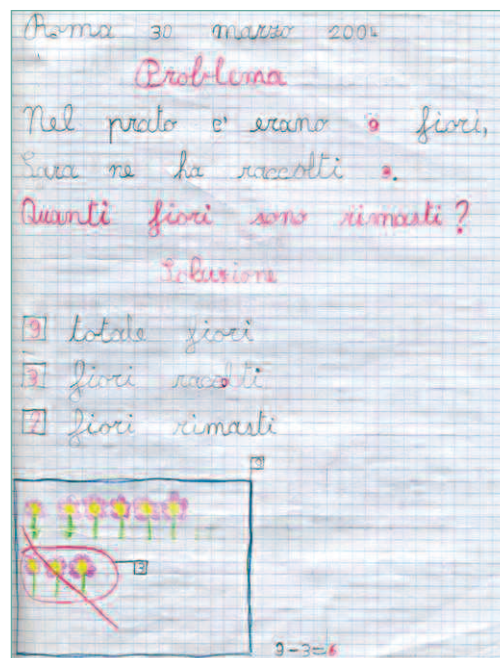 Roma 30 marzo 2004
Problema
Nel prato c'erano 9 fiori,
Sara ne ha raccolti 3.
Quanti fiori sono rimasti?
Soluzione
9 totale fiori
3 fiori racolti
? fiori rimasti
9
3
9-3=6